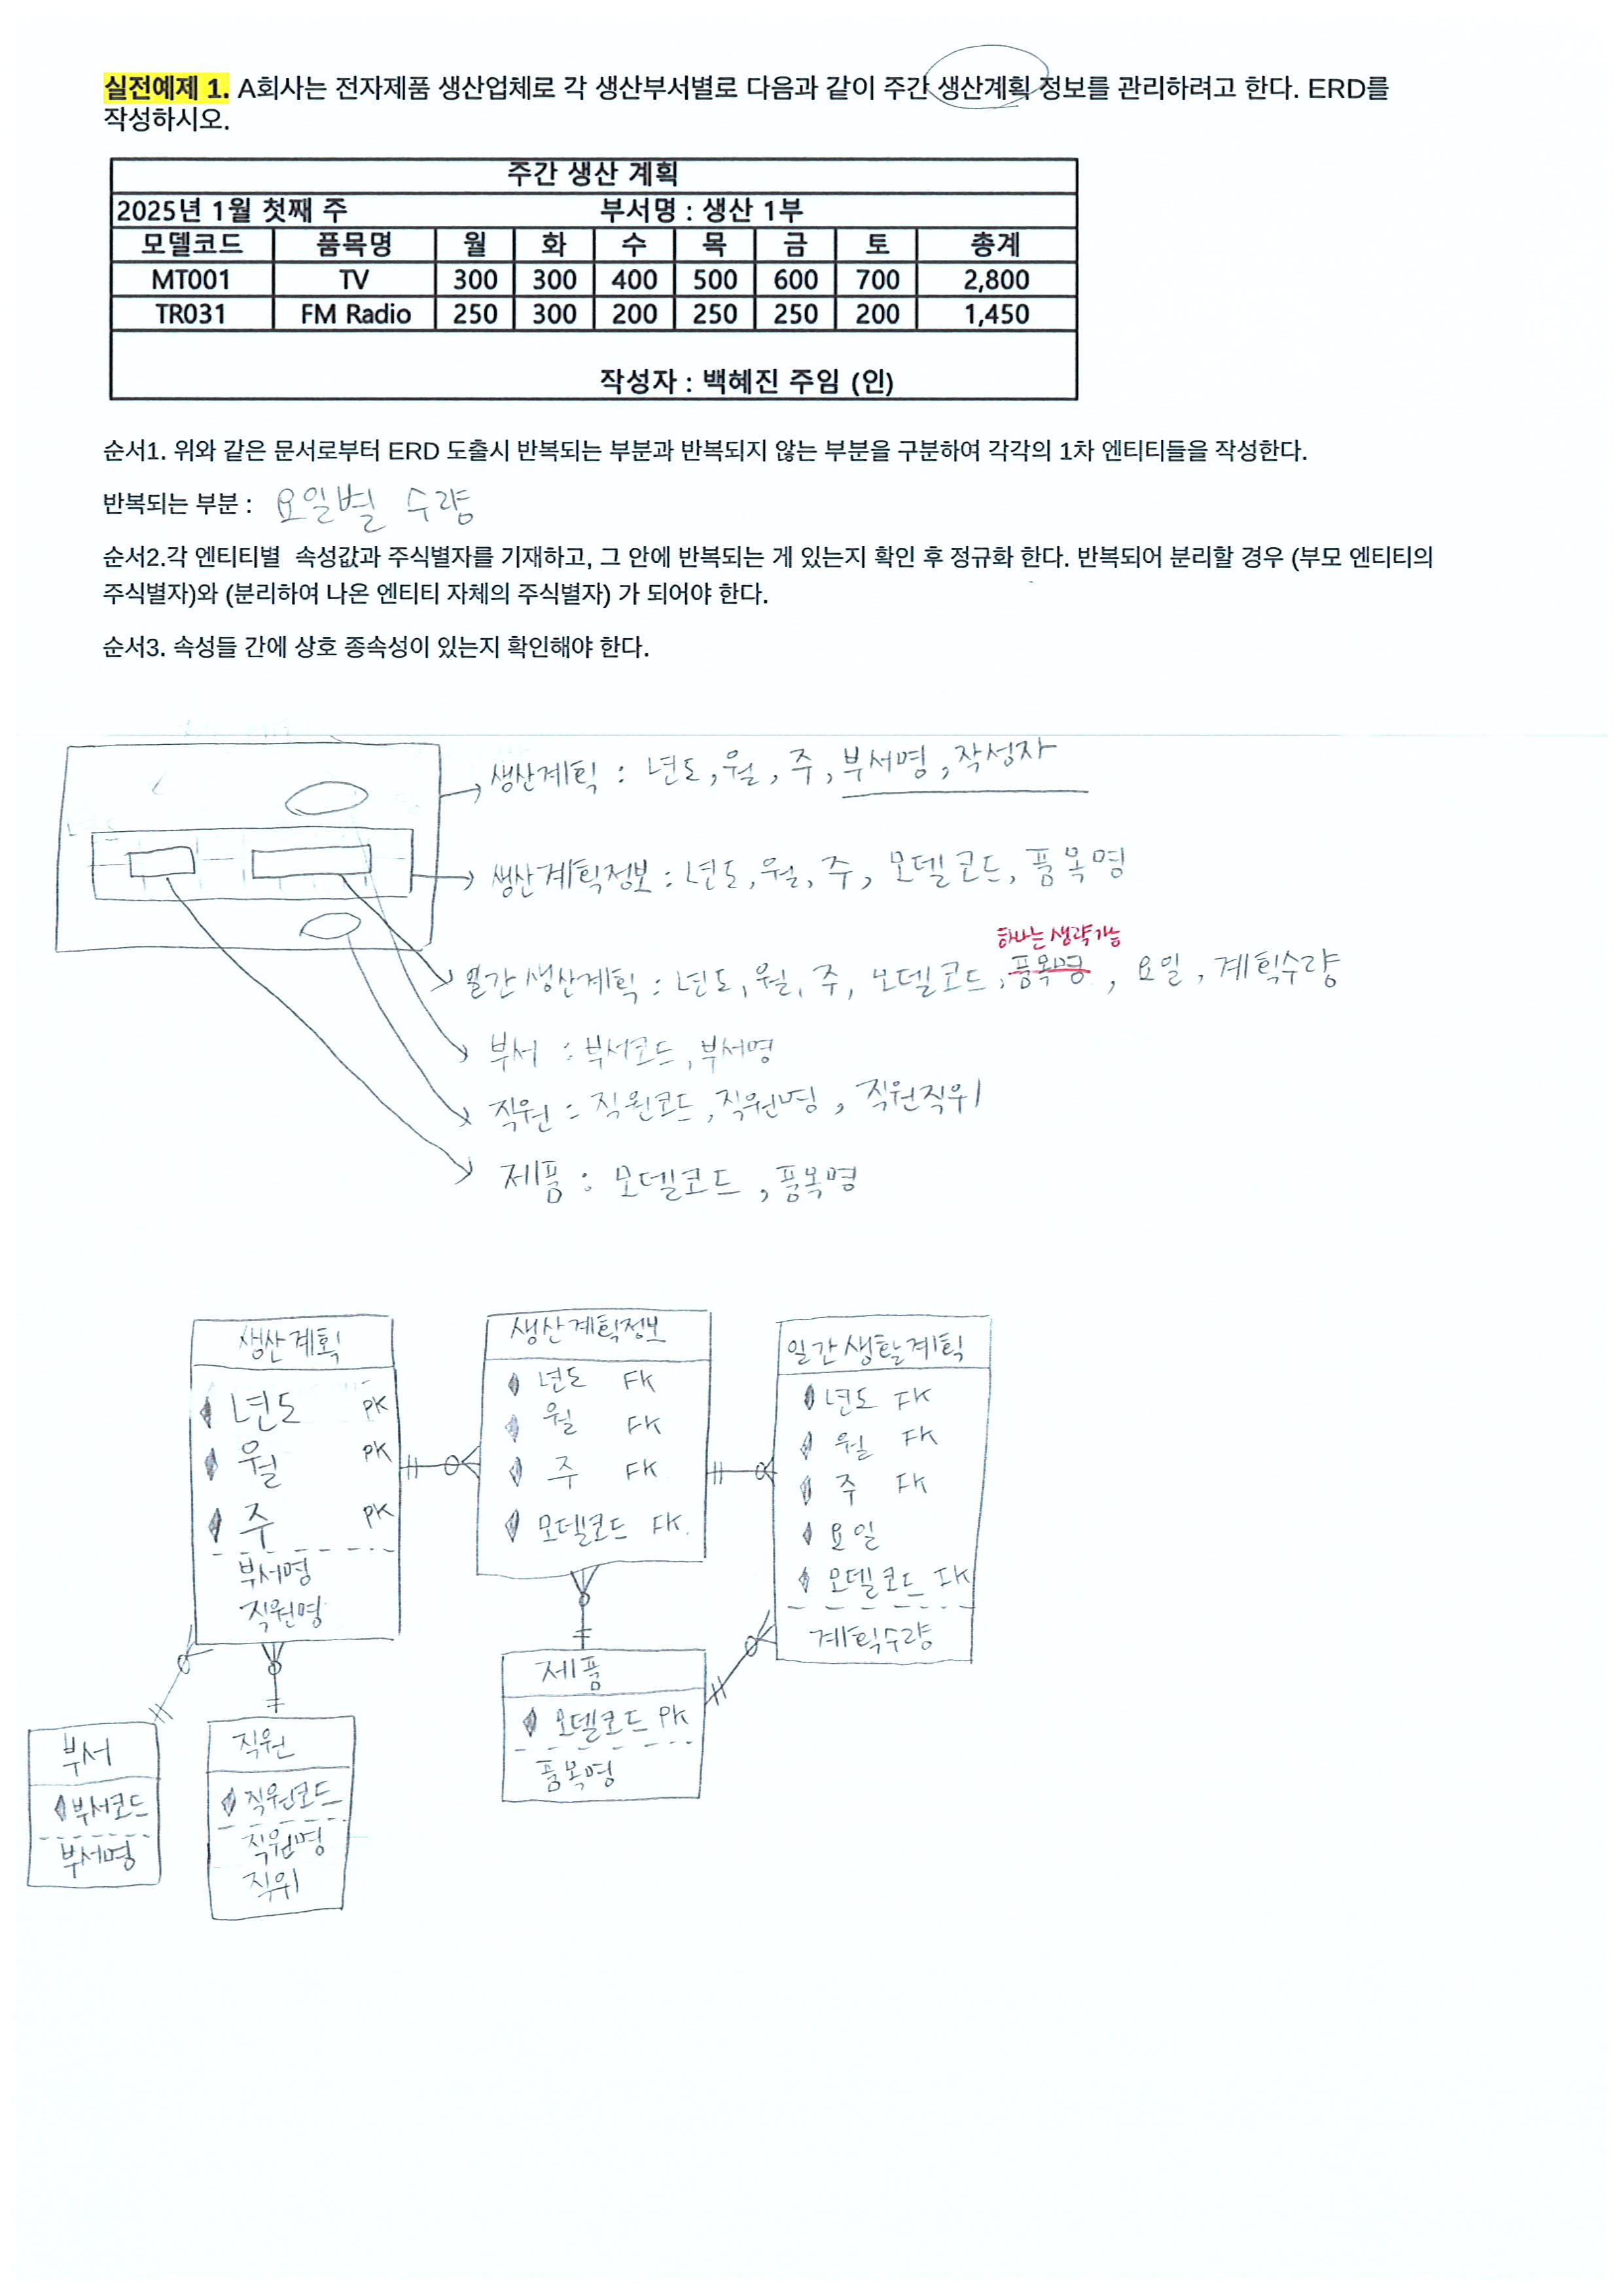 실전예제 1. A회사는 전자제품 생산업체로 각 생산부서별로 다음과 같이 주간 생산계획 정보를 관리하려고 한다. ERD를
작성하시오.
주간 생산 계획
2025년 1월 첫째 주 부서명 : 생산 1부
모델코드 품목명 월 화 수 목 금 토 총계
MT001 TV 300 300 400 500 600 700 2,800
TR031 FM Radio 250 300 200 250 250 200 1,450
작성자 : 백혜진 주임 (인)
순서1. 위와 같은 문서로부터 ERD 도출시 반복되는 부분과 반복되지 않는 부분을 구분하여 각각의 1차 엔티티들을 작성한다.
반복되는 부분 : 요일별 수량
순서2.각 엔티티별 속성값과 주식별자를 기재하고, 그 안에 반복되는 게 있는지 확인 후 정규화 한다. 반복되어 분리할 경우 (부모 엔티티의
주식별자)와 (분리하여 나온 엔티티 자체의 주식별자) 가 되어야 한다.
순서3. 속성들 간에 상호 종속성이 있는지 확인해야 한다.
생산계획 : 년도, 월, 주, 부서명, 작성자
생산계획정보 : 년도, 월, 주, 모델코드, 품목명
하나는 생략가능
일간생산계획 : 년도, 월, 주, 모델코드, 품목명, 요일, 계획수량
부서 : 부서코드, 부서명
직원 : 직원코드, 직원명, 직원직위
제품 : 모델코드, 품목명
생산계획
년도 PK
월 PK
주 PK
부서명
직원명
생산계획정보
년도 FK
월 FK
주 FK
모델코드 FK.
일간생산계획
년도 FK
월 FK
주 FK
요일
모델코드 FK
계획수량
부서
부서코드
부서명
직원
직원코드
직원명
직위
제품
모델코드 PK
품목명